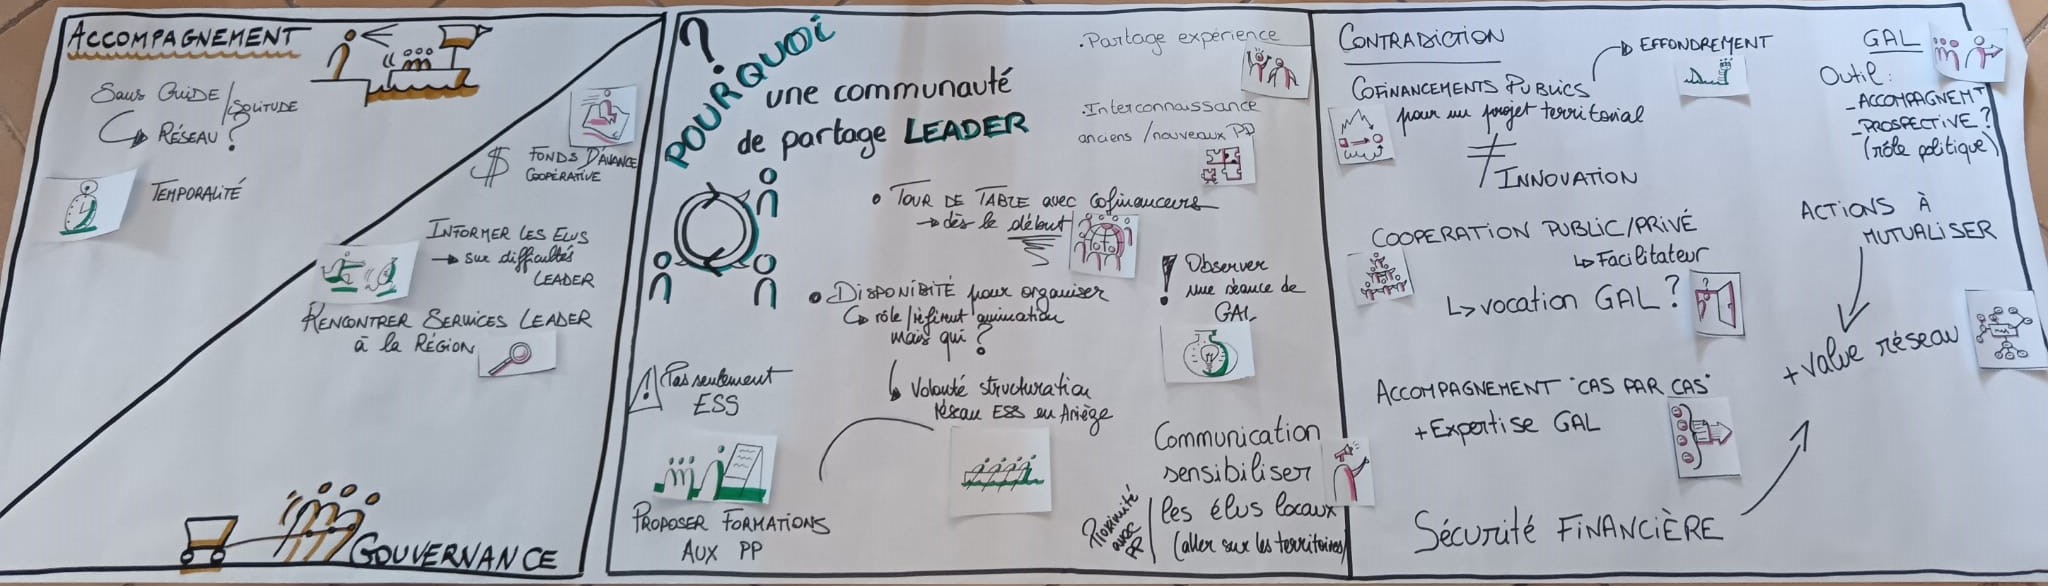 ACCOMPAGNEMENT
Sans GUIDE / SOLITUDE
RÉSEAU ?
TEMPORALITÉ
$ FONDS D'AVANCE
COOPÉRATIVE
INFORMER LES ELUS
→ sur difficultés
LEADER
RENCONTRER SERVICES LEADER
à la RÉGION
GOUVERNANCE
? POURQUOI
une communauté
de partage LEADER
. Partage expérience
. Interconnaissance
anciens / nouveaux
• TOUR DE TABLE avec Cofinanceurs
→ dès le début
• DISPONIBITÉ pour organiser
rôle / référent animation
mais qui ?
Volonté structuration
réseau ESS en Ariège
! Observer
une séance de
GAL
! Pas seulement
ESS
PROPOSER FORMATIONS
AUX PP
Communication
sensibiliser
les élus locaux
(aller sur les territoires)
Proximité
avec
PP
CONTRADICTION
COFINANCEMENTS PUBLICS
pour un projet territorial
→ EFFONDREMENT
≠
INNOVATION
COOPERATION PUBLIC/PRIVÉ
↳ Facilitateur
↳ vocation GAL ?
ACCOMPAGNEMENT "CAS PAR CAS"
+ Expertise GAL
Sécurité FINANCIÈRE
GAL
Outil :
- ACCOMPAGNEMT
- PROSPECTIVE ?
(rôle politique)
ACTIONS À
MUTUALISER
+ value réseau